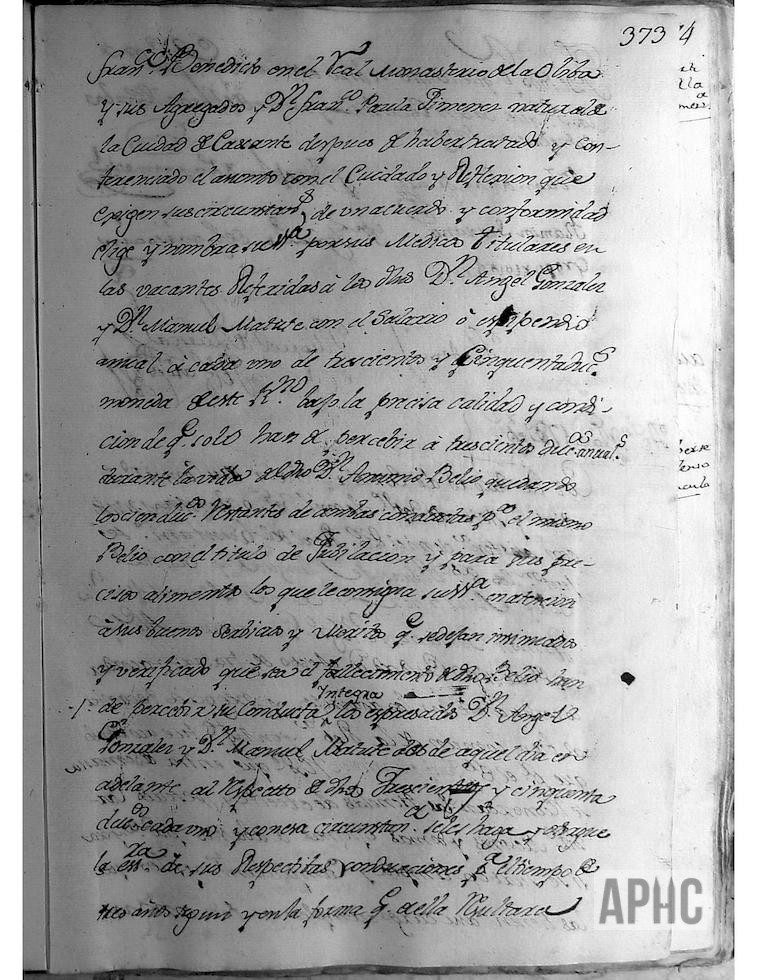 373 4
Fran.co Benedicto en el Real Monasterio de la Oliba
y sus Agregados y Dn. Fran.co Paula Ximenez natural de
la Ciudad de Cascante despues de haber tratado y con-
ferenciado el asonto con el Cuidado y Reflexion que
exigen sus circunstan.s de un acuerdo y conformidad
elige y nombra su S.a por sus Medicos Titulares en
las vacantes Referidas à los dhos Dn. Angel Gonzalez
y Dn. Manuel Matute con el Salario ò estipendio
anual à cada uno de trescientos y Cinquenta duc.s
moneda de este R.no bajo la precisa calidad y condi-
cion de q.e solo han de percebir à trescientos duc.os anual.s
durante la vida del dho Dn. Antonio Belio quedando
los cien duc.os Restantes de ambas conductas p.a el mismo
Belio con el titulo de Jubilacion y para sus pre-
cisos alimentos los que le consigna su S.a en atencion
à sus buenos Serbicios y Meritos q.e se dejan insinuados
y verificado que sea el fallecimiento de dho Belio han
de percebir su Conducta Integra los expresados Dn. Angel
Gonzalez y Dn. Manuel Matute desde aquel dia en
adelante al Respecto de dhos Trescientos y cinquenta
duc.os cada uno y con esa circunstan.a se les haga y otorgue
la ess.ra de sus Respectibas conduciones p.r el tiempo de
tres años segun y en la forma q.e de ella Resultara
APHC